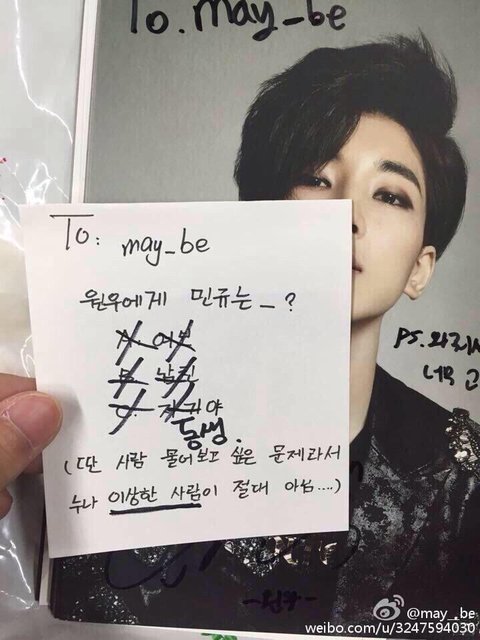 To. may_be
To: may_be
원우에게 민규는 _ ?
여보
남친
자기야
동생.
(딴 사람 물어보고 싶은 문제라서
누나 이상한 사람이 절대 아님....)
PS.
너무
-원우-
@may_be
weibo.com/u/3247594030